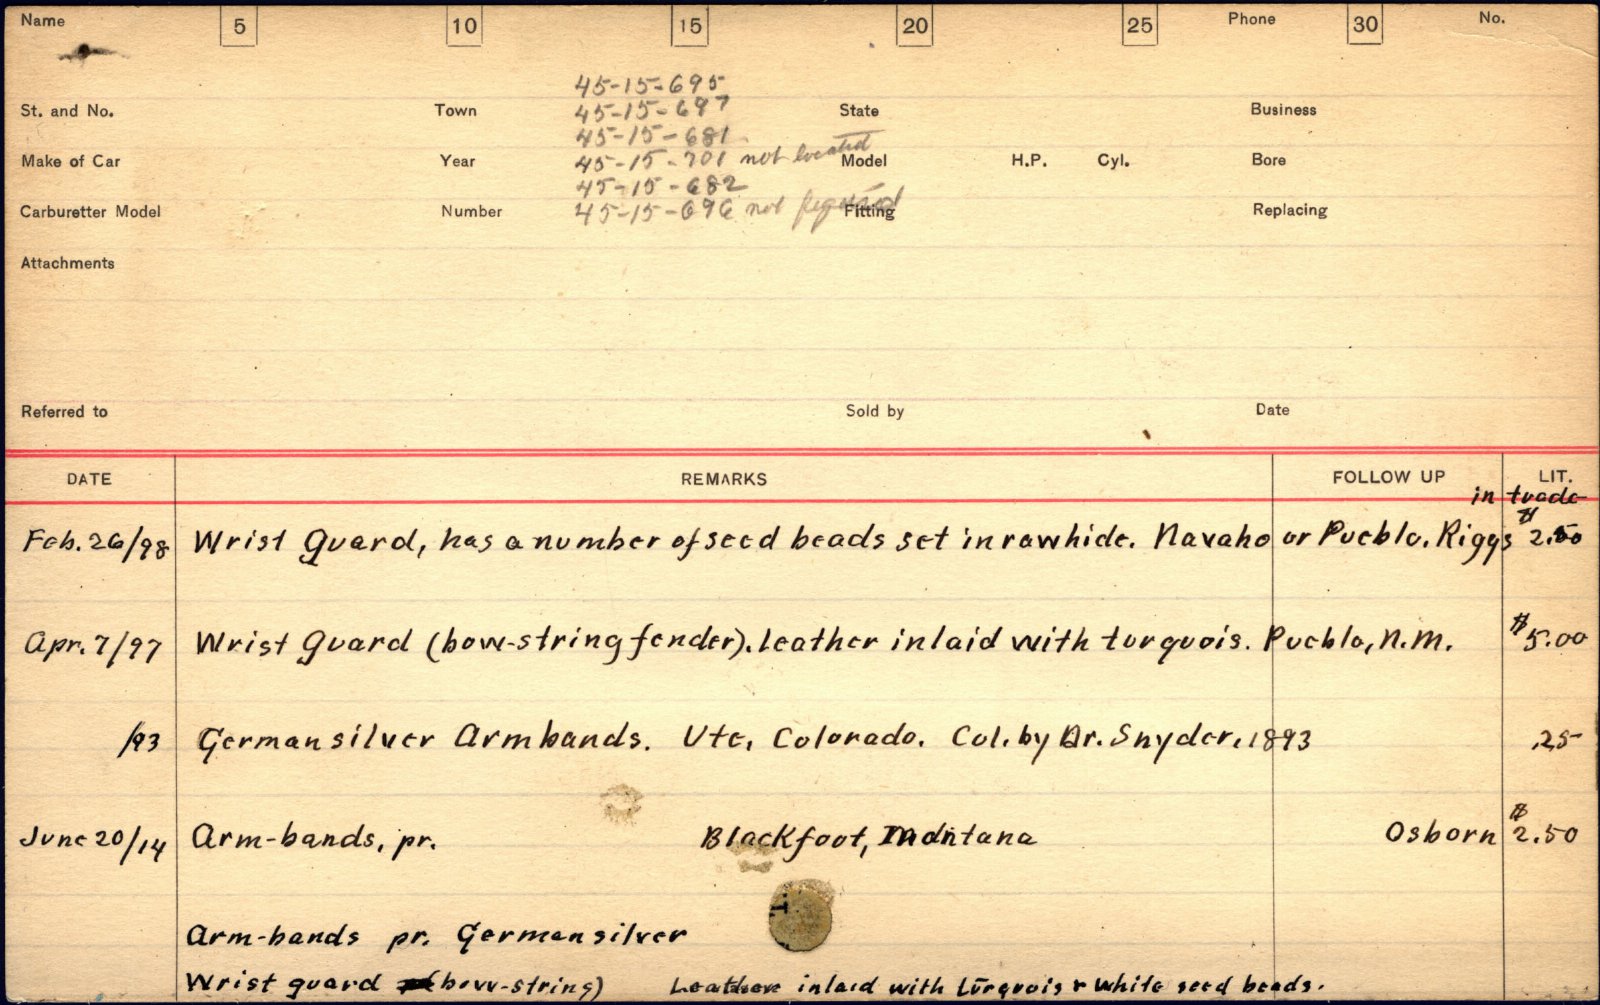 Name 5 10 15 20 25 Phone 30 No.
45-15-695
St. and No. Town 45-15-697 State Business
45-15-681
Make of Car Year 45-15-701 not located Model H.P. Cyl. Bore
45-15-682
Carburetter Model Number 45-15-696 not Fitting Replacing
Attachments
Referred to Sold by Date
DATE REMARKS FOLLOW UP LIT.
in trade
Feb. 26/98 Wrist Guard, has a number of seed beads set in rawhide. Navaho or Pueblo. Riggs $2.50
Apr. 7/97 Wrist Guard (bow-string fender). Leather inlaid with turquois. Pueblo, N.M. $5.00
/93 German silver Armbands. Ute, Colorado. Col. by Dr. Snyder, 1893 .25
June 20/14 Arm-bands, pr. Blackfoot, Montana Osborn $2.50
Arm-bands pr. German silver
Wrist guard (bow-string) Leather inlaid with turquois & white seed beads.